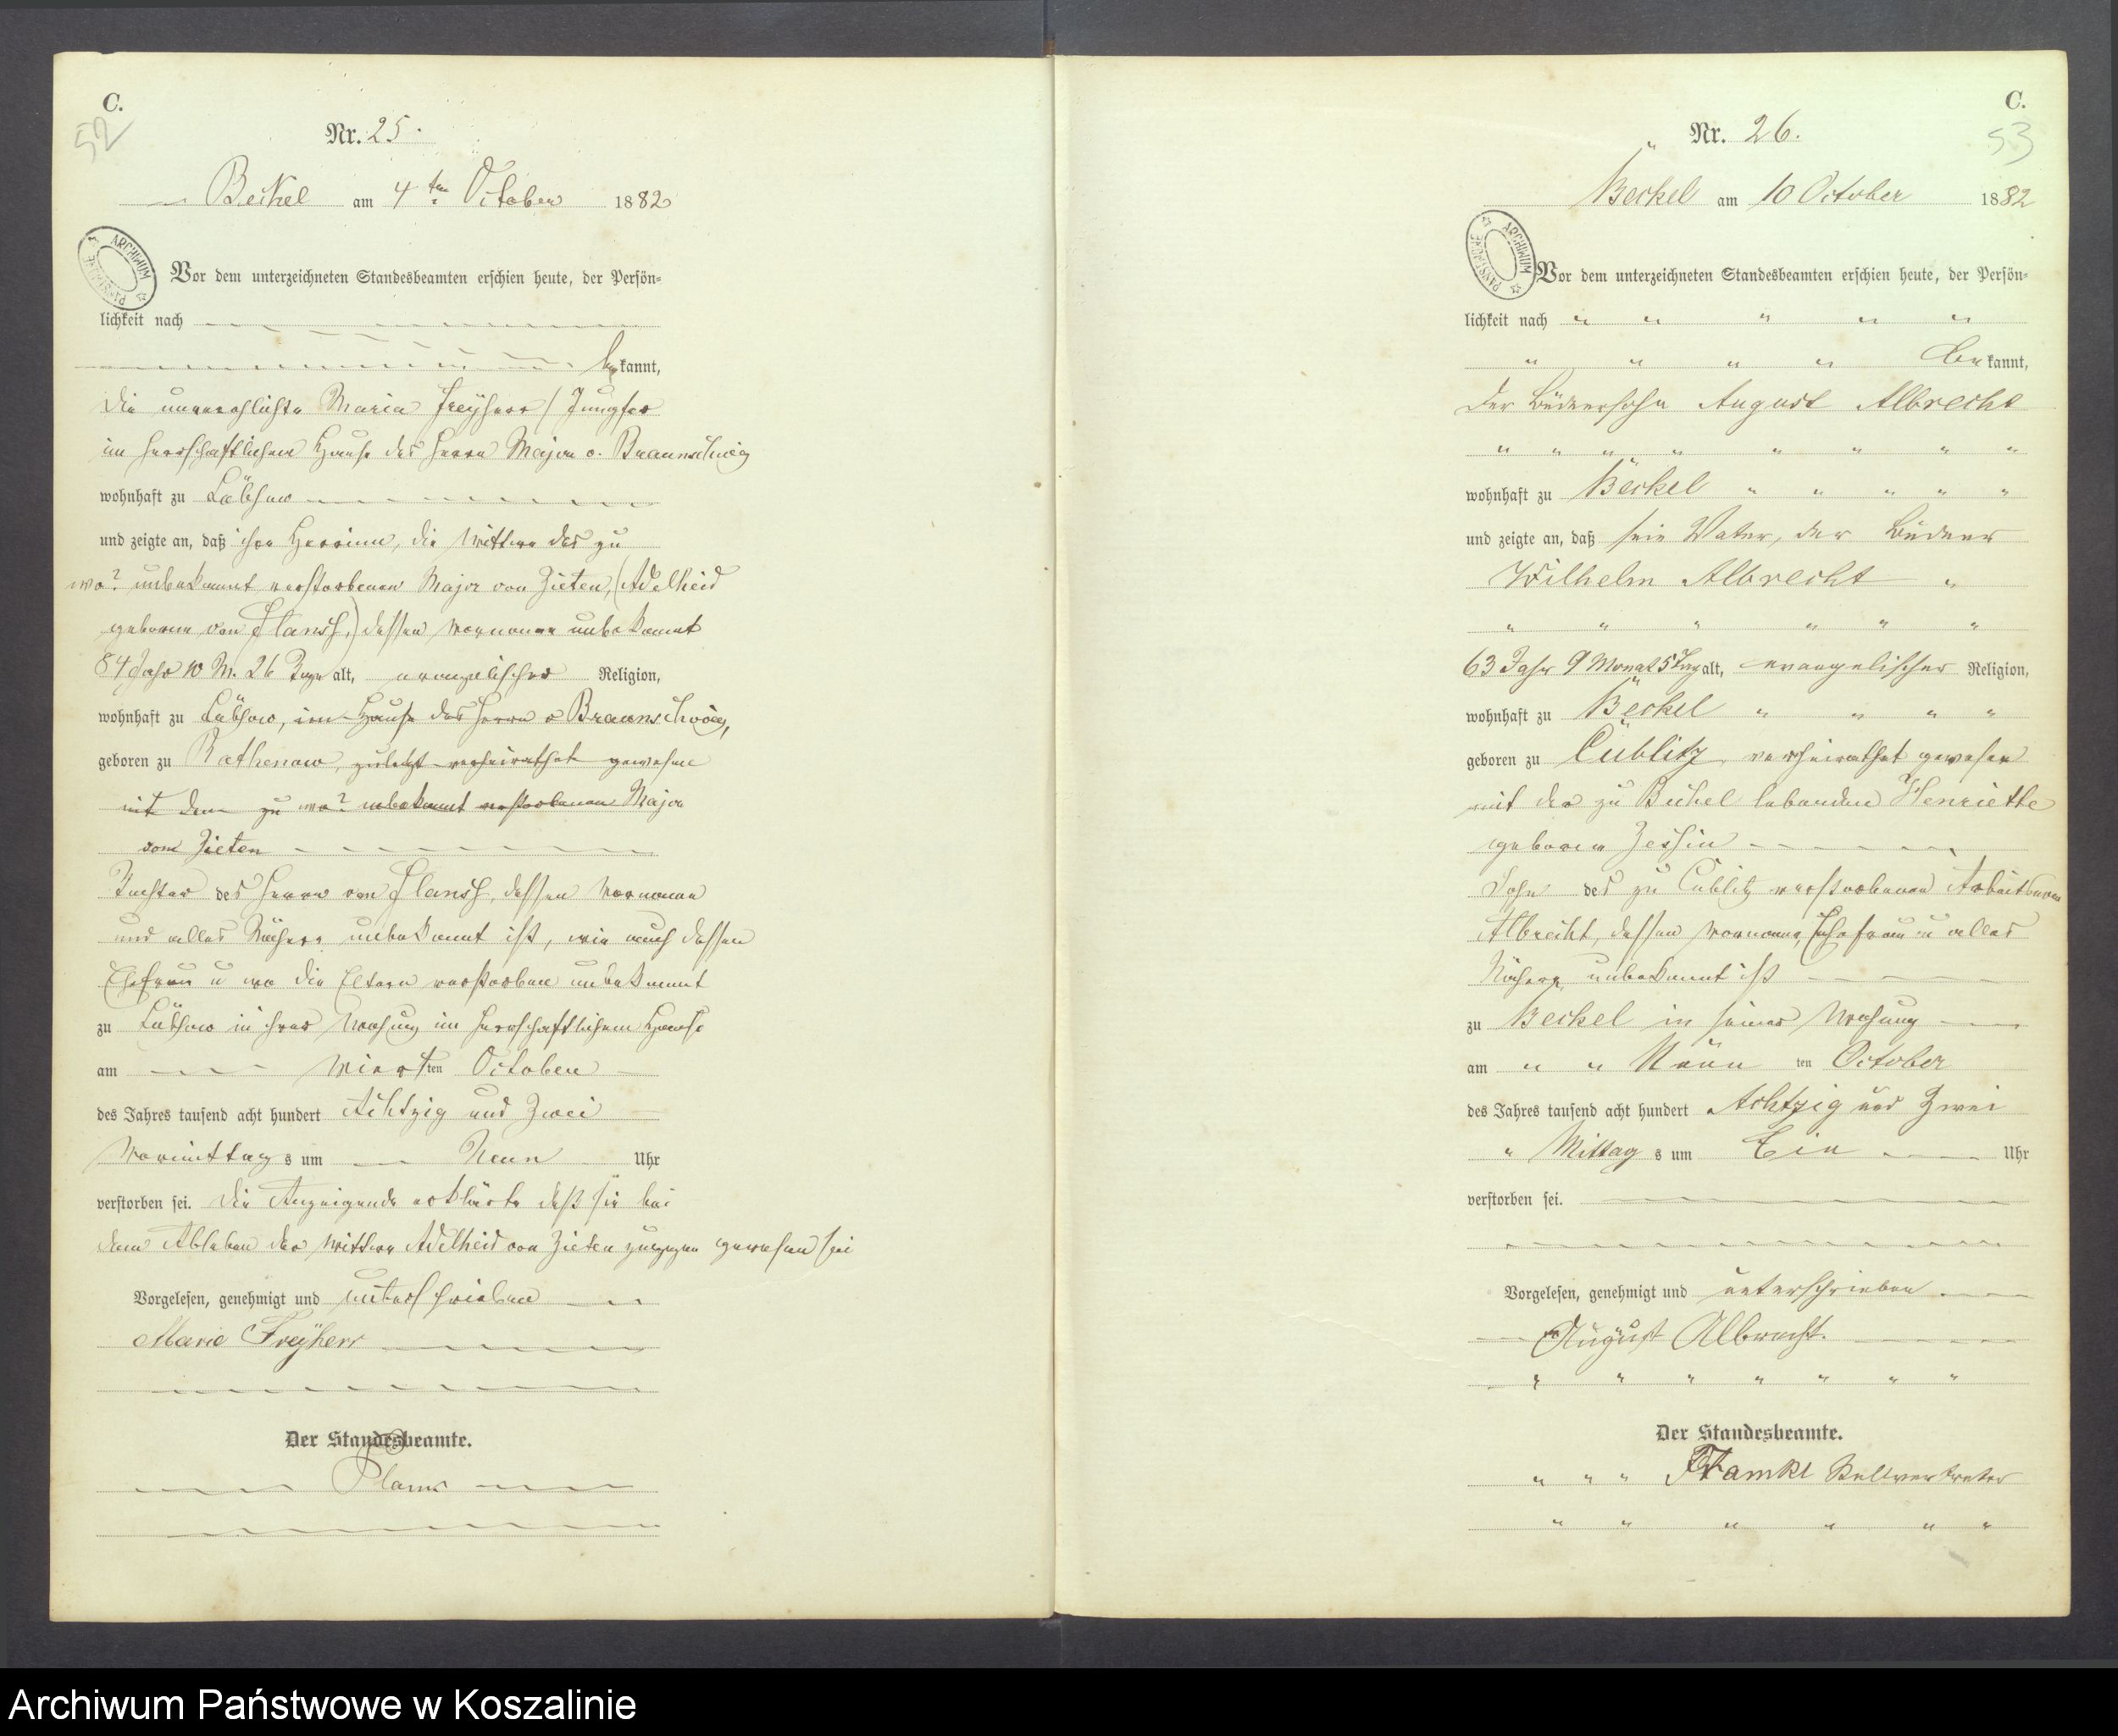 C.
52
Nr. 25.
Beckel am 4ten October 1882
ARCHIWUM PAŃSTWOWE
Vor dem unterzeichneten Standesbeamten erschien heute, der Persön-
lichkeit nach
bekannt,
die unverehlichte Maria Freyherr / Jungfer
im herrschaftlichen Hause des Herrn Major v. Braunschweig
wohnhaft zu Lübzow
und zeigte an, daß ihre Herrinn, die Wittwe des zu
wo? unbekannt verstorbenen Major von Zieten, (Adelheid
geborene von Flansz,) dessen Vorname unbekannt
84 Jahr 10 M. 26 Tage alt, evangelischer Religion,
wohnhaft zu Lübzow, im Hause des Herrn v Braunschweig,
geboren zu Rathenow, zuletzt verheirathet gewesen
mit dem zu wo? unbekannt verstorbenen Major
von Zieten
Tochter des Herrn von Flansz, dessen Vorname
und alles Nähere unbekannt ist, wie auch dessen
Ehefrau u wo die Eltern verstorben unbekannt
zu Lübzow in ihrer Wohung im herrschaftlichem Hause
am Vierten October
des Jahres tausend acht hundert Achtzig und Zwei
Vormittags um Neun Uhr
verstorben sei. Die Anzeigende erklärte daß sie bei
dem Ableben der Wittwe Adelheid von Zieten zugegen gewesen sei
Vorgelesen, genehmigt und unterschrieben
Marie Freyherr
Der Standesbeamte.
C.
53
Nr. 26.
Beckel am 10 October 1882
ARCHIWUM PAŃSTWOWE
Vor dem unterzeichneten Standesbeamten erschien heute, der Persön-
lichkeit nach
bekannt,
der Büdnersohn August Albrecht
wohnhaft zu Beckel
und zeigte an, daß sein Vater, der Büdner
Wilhelm Albrecht
63 Jahr 9 Monat 5 Tag alt, evangelischer Religion,
wohnhaft zu Beckel
geboren zu Cublitz, verheirathet gewesen
mit der zu Beckel lebenden Henriette
geboren Zessin
Sohn des zu Cublitz verstorbenen Arbeitsmann
Albrecht, dessen Vorname, Ehefrau u alles
Nähere unbekannt ist
zu Beckel in seiner Wohung
am Neun ten October
des Jahres tausend acht hundert Achtzig und Zwei
Mittags um Ein Uhr
verstorben sei.
Vorgelesen, genehmigt und unterschrieben
August Albrecht.
Der Standesbeamte.
Stellvertreter
Archiwum Państwowe w Koszalinie